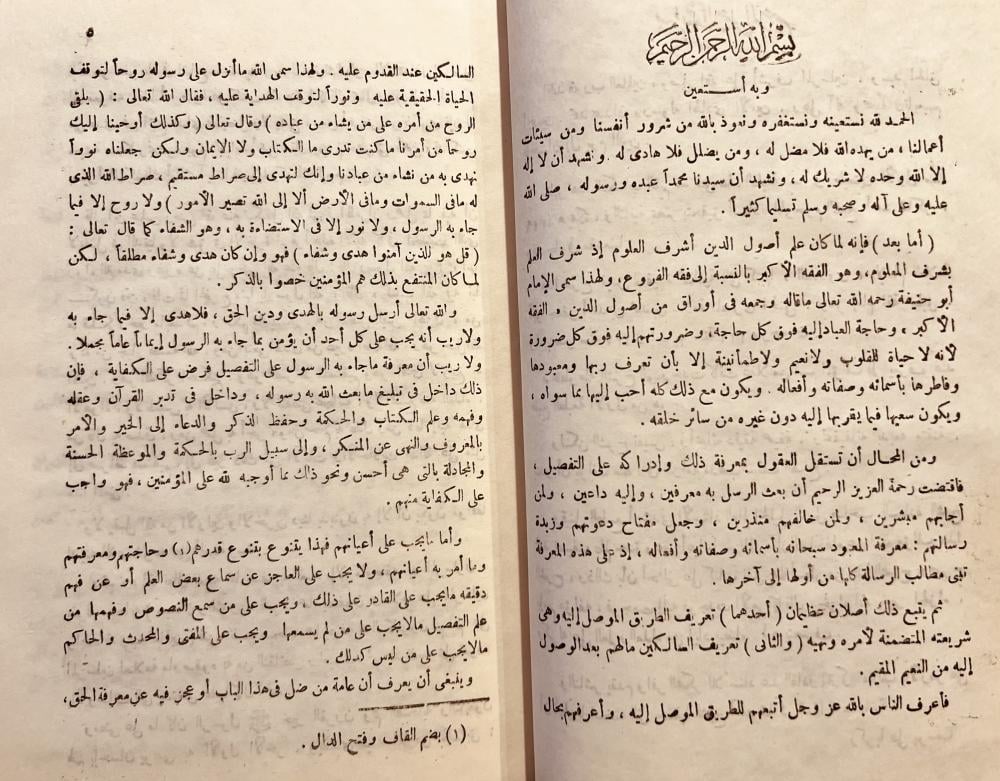 بسم الله الرحمن الرحيم
وبه أستعين
الحمد لله نستعينه ونستغفره ونعوذ بالله من شرور أنفسنا ومن سيئات
أعمالنا ، من يهده الله فلا مضل له ، ومن يضلل فلا هادى له . ونشهد أن لا إله
إلا الله وحده لا شريك له ، ونشهد أن سيدنا محمداً عبده ورسوله ، صلى الله
عليه وعلى آله وصحبه وسلم تسليما كثيراً .
( أما بعد ) فإنه لما كان علم أصول الدين أشرف العلوم إذ شرف العلم
بشرف المعلوم ، وهو الفقه الأكبر بالنسبة إلى فقه الفروع ، ولهذا سمى الإمام
أبو حنيفة رحمه الله تعالى ماقاله وجمعه فى أوراق من أصول الدين « الفقه
الأكبر » وحاجة العباد إليه فوق كل حاجة ، وضرورتهم إليه فوق كل ضرورة
لأنه لا حياة للقلوب ولا نعيم ولا طمأنينة إلا بأن تعرف ربها ومعبودها
وفاطرها بأسمائه وصفاته وأفعاله . ويكون مع ذلك كله أحب إليها بما سواه ،
ويكون سعيها فيما يقربها إليه دون غيره من سائر خلقه .
ومن المحال أن تستقل العقول بمعرفة ذلك وإدراكه على التفصيل ،
فاقتضت رحمة العزيز الرحيم أن بعث الرسل به معرفين ، وإليه داعين ، ولمن
أجابهم مبشرين ، ولمن خالفهم منذرين ، وجعل مفتاح دعوتهم وزبدة
رسالتهم : معرفة المعبود سبحانه بأسمائه وصفاته وأفعاله ، إذ على هذه المعرفة
تبنى مطالب الرسالة كلها من أولها إلى آخرها .
ثم يتبع ذلك أصلان عظيمان ( أحدهما ) تعريف الطريق الموصل إليه وهى
شريعته المتضمنة لأمره ونهيه ( والثانى ) تعريف السالكين مالهم بعد الوصول
إليه من النعيم المقيم .
فأعرف الناس بالله عز وجل أتبعهم للطريق الموصل إليه ، وأعرفهم بحال
٥
السالكين عند القدوم عليه . ولهذا سمى الله ما أنزل على رسوله روحاً لتوقف
الحياة الحقيقية عليه ونوراً لتوقف الهداية عليه ، فقال الله تعالى : ( يلقى
الروح من أمره على من يشاء من عباده ) وقال تعالى ( وكذلك أوحينا إليك
روحاً من أمرنا ما كنت تدرى ما الكتاب ولا الايمان ولكن جعلناه نوراً
نهدى به من نشاء من عبادنا وإنك لتهدى إلى صراط مستقيم ، صراط الله الذى
له مافى السموات ومافى الأرض ألا إلى الله تصير الأمور ) ولا روح إلا فيما
جاء به الرسول ، ولا نور إلا فى الاستضاءة به ، وهو الشفاء كما قال تعالى :
( قل هو للذين آمنوا هدى وشفاء ) فهو وإن كان هدى وشفاء مطلقاً ، لكن
لما كان المنتفع بذلك هم المؤمنين خصوا بالذكر .
والله تعالى أرسل رسوله بالهدى ودين الحق ، فلا هدى إلا فيما جاء به
ولا ريب أنه يجب على كل أحد أن يؤمن بما جاء به الرسول إيماناً عاماً مجملا .
ولا ريب أن معرفة ماجاء به الرسول على التفصيل فرض على الكفاية ، فإن
ذلك داخل فى تبليغ ما بعث الله به رسوله ، وداخل فى تدبر القرآن وعقله
وفهمه وعلم الكتاب والحكمة وحفظ الذكر والدعاء إلى الخير والأمر
بالمعروف والنهى عن المنكر ، وإلى سبيل الرب بالحكمة والموعظة الحسنة
والمجادلة بالتى هى أحسن ونحو ذلك بما أوجبه لله على المؤمنين ، فهو واجب
على الكفاية منهم .
وأما مايجب على أعيانهم فهذا يتنوع بتنوع قدرهم (١) وحاجتهم ومعرفتهم
وما أمر به أعيانهم ، ولا يجب على العاجز عن سماع بعض العلم أو عن فهم
دقيقه مايجب على القادر على ذلك ، ويجب على من سمع النصوص وفهمها من
علم التفصيل مالا يجب على من لم يسمعها ويجب على المفتى والمحدث والحاكم
مالا يجب على من ليس كذلك .
وينبغى أن يعرف أن عامة من ضل فى هذا الباب أو عجز فيه عن معرفة الحق ،
(١) بضم القاف وفتح الدال .